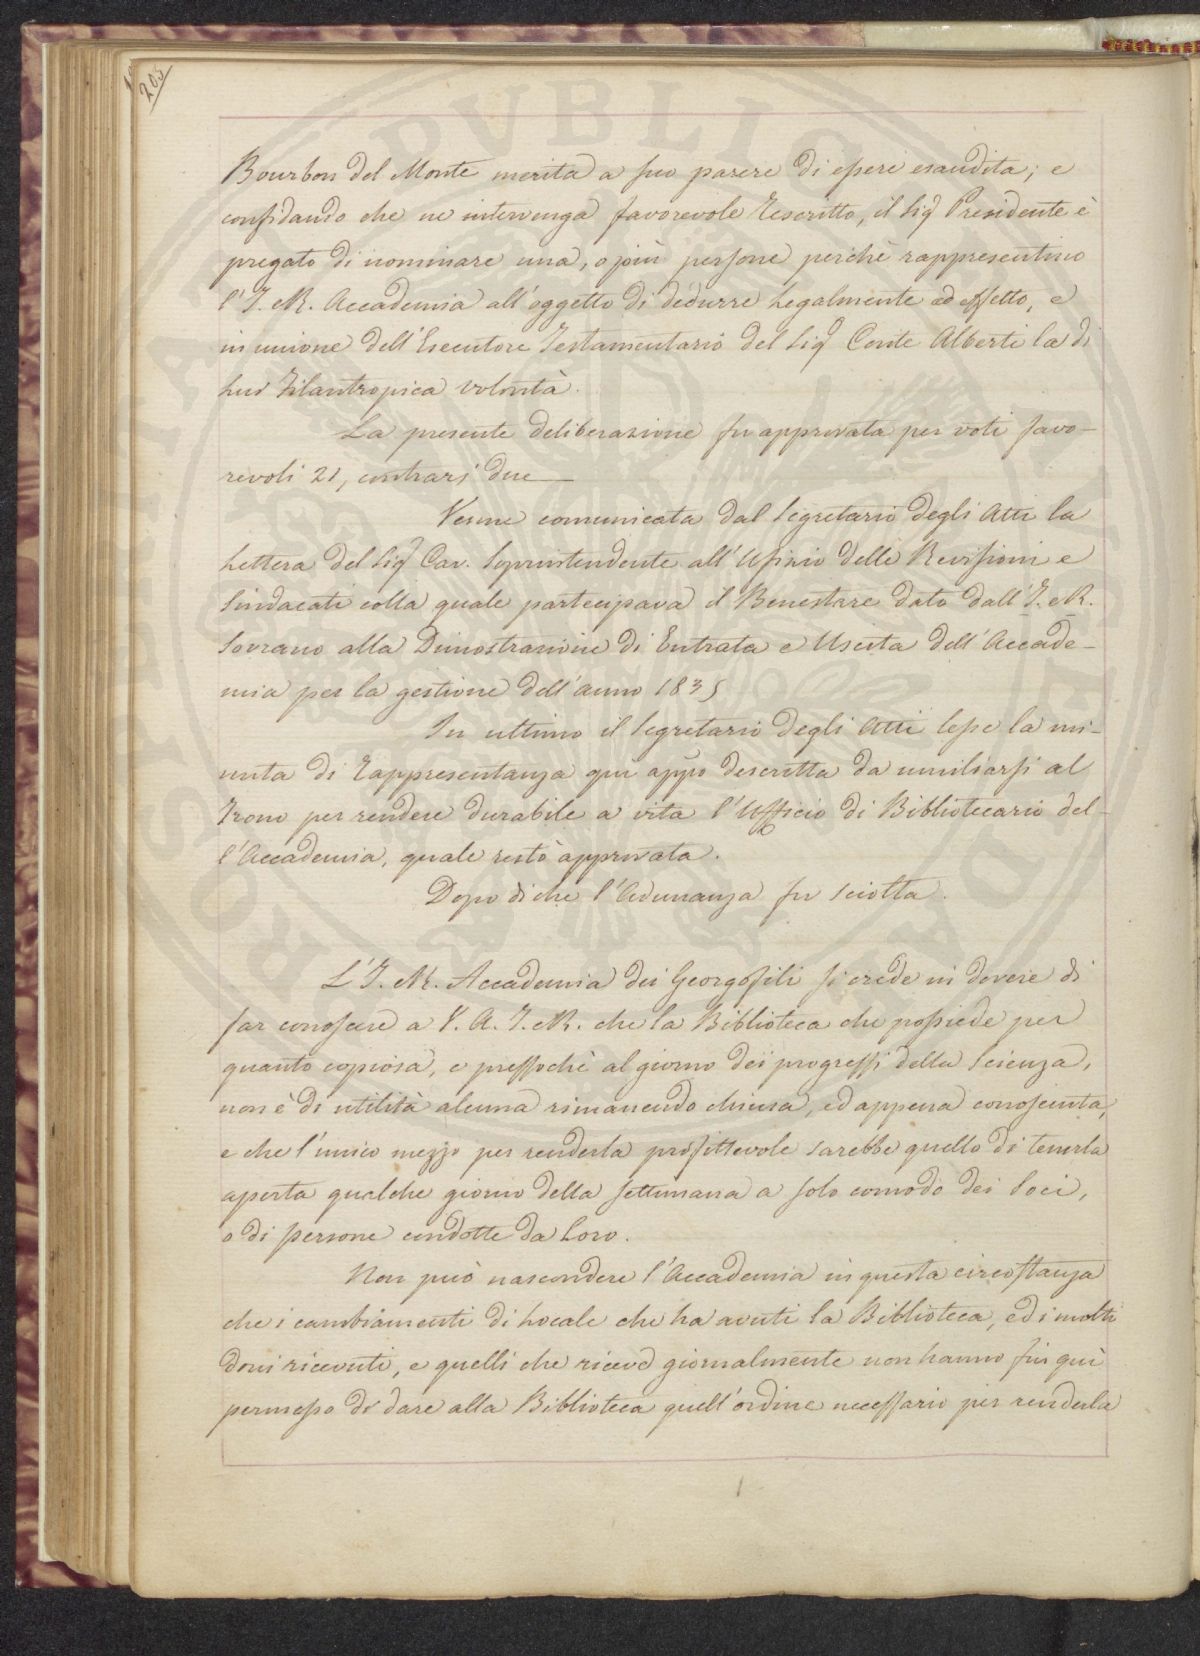 205
Bourbon del Monte merita a suo parere di essere esaudita; e
confidando che ne intervenga favorevole Rescritto, il Sig.r Presidente è
pregato di nominare una, o più persone perchè rappresentino
l'I. e R. Accademia all'oggetto di dedurre legalmente ad effetto, e
in unione dell'Esecutore Testamentario del Sig.r Conte Alberti la di
Lui Filantropica volontà.
La presente deliberazione fu approvata per voti favo-
revoli 21, contrarj due
Venne comunicata dal Segretario degli Atti la
Lettera del Sig.r Cav. Soprintendente all'Ufizio delle Revisioni e
Sindacati colla quale partecipava il Benestare dato dall'I. e R.
Sovrano alla Dimostrazione di Entrata e Uscita dell'Accade-
mia per la gestione dell'anno 1835
In ultimo il Segretario degli Atti lesse la mi-
nuta di Rappresentanza qui app.o descritta da umiliarsi al
Trono per rendere durabile a vita l'Ufficio di Bibliotecario del-
l'Accademia, quale restò approvata.
Dopo di che l'Adunanza fu sciolta.
L'I. e R. Accademia dei Georgofili si crede in dovere di
far conoscere a V. A. I. e R. che la Biblioteca che possiede per
quanto copiosa, e pressochè al giorno dei progressi della Scienza,
non è di utilità alcuna rimanendo chiusa, ed appena conosciuta,
e che l'unico mezzo per renderla profittevole sarebbe quello di tenerla
aperta qualche giorno della settimana a solo comodo dei Soci,
o di persone condotte da Loro.
Non può nascondere l'Accademia in questa circostanza
che i cambiamenti di Locale che ha avuti la Biblioteca, ed i molti
doni ricevuti, e quelli che riceve giornalmente non hanno fin qui
permesso di dare alla Biblioteca quell'ordine necessario per renderla